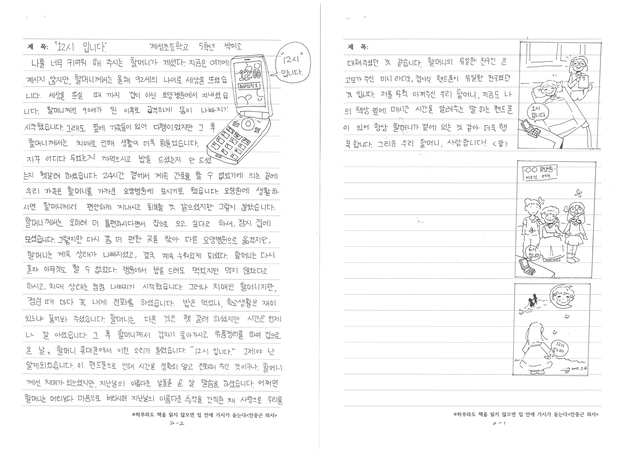 제 목: "12시 입니다" 계성초등학교 5학년
나를 너무 귀여워 해 주시는 할머니가 계셨다. 지금은
계시지 않지만, 할머니께서는 올해 92세의 나이로 세상을 뜨셨습
니다. 세상을 뜨실 때 까지 집이 아닌 요양병원에서 지내셨습
니다. 할머니께서 90세가 된 이후로 급격하게 몸이 나빠지기
시작했습니다. 그래도 옆에 가족들이 있어 다행이었지만 그 후
할머니께서는 치매로 인해 생활이 더욱 힘들었습니다.
자꾸 어디다 두었는지 까먹으시고 밥을 드셨는지 안 드셨
는지 헷갈려 하셨습니다. 24시간 곁에서 계속 간호를 할 수 없었기에 의논 끝에
우리 가족은 할머니를 가까운 요양병원에 모시기로 했습니다. 요양원에 생활하
시면 할머니께서 편안하게 지내시고 회복할 것 같으셨지만 그렇지 않았습니다.
할머니께서는 오히려 더 불편하시다면서 집으로 오고 싶다고 하셔, 잠시 집에
모셨습니다. 그렇지만 다시 좀 더 편한 곳을 찾아 다른 요양병원으로 옮겼지만,
할머니는 계속 상태가 나빠지셨고, 결국 계속 누워있게 되었다. 할머니는 다시
혼자 아무것도 할 수 없었다. 병원에서 밥을 드려도 먹었지만 먹지 않았다고
하시고, 치매 상태는 점점 나빠지기 시작했습니다. 그러나 치매인 할머니지만,
점심 때 마다 꼭 내게 전화를 하셨습니다. 밥은 먹었니, 학교생활은 재미
있느냐 물어봐 주셨습니다. 할머니는 다른 것은 헷갈려 하셨지만 시간은 언제
나 잘 아셨습니다. 그 후 할머니께서 갑자기 돌아가시고 유품정리를 하며 집으로
온 날, 할머니 휴대폰에서 이런 소리가 들렸습니다. "12시 입니다." 그제야 난
알게되었습니다. 이 핸드폰으로 인해 시간을 정확히 알고 전화해 주신 것이구나. 할머니
께선 치매가 있으셨지만, 지난날의 아름다운 말씀을 하셨습니다. 어쩌면
할머니는 머리보다 마음으로 지난날의 아름다운 추억을 간직한 채 사랑으로 우리를
*하루라도 책을 읽지 않으면 입 안에 가시가 돋는다<안중근 의사>
2-2
"12시
입니다."
제 목:
대해주셨던 것 같습니다. 할머니의 유일한 친구는 큰
고모가 주신 미니 라디오, 접이식 핸드폰이 유일한 친구였던
것 입니다. 저를 무척 아껴주신 우리 할머니, 지금도 나
의 책상 옆에 매시간 시간을 알려주는 말 하는 핸드폰
이 있어 항상 할머니가 곁에 있는 것 같아 더욱 행
복합니다. 그리운 우리 할머니, 사랑합니다! <끝>
*하루라도 책을 읽지 않으면 입 안에 가시가 돋는다<안중근 의사>
2-1